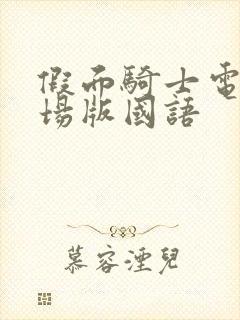 假面騎士電
場版國語
慕容湮兒